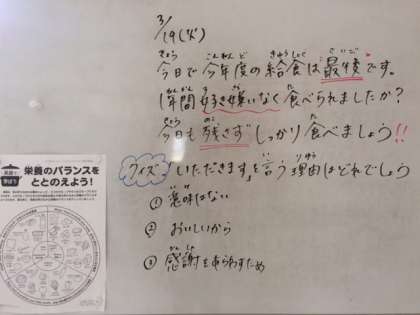 3/19(火)
今日で今年度の給食は最後です。
1年間好き嫌いなく食べられましたか?
今日も残さずしっかり食べましょう!!
クイズ「いただきます」を言う理由はどれでしょう
① 意味はない
② おいしいから
③ 感謝をあらわすため
栄養のバランスを
ととのえよう!